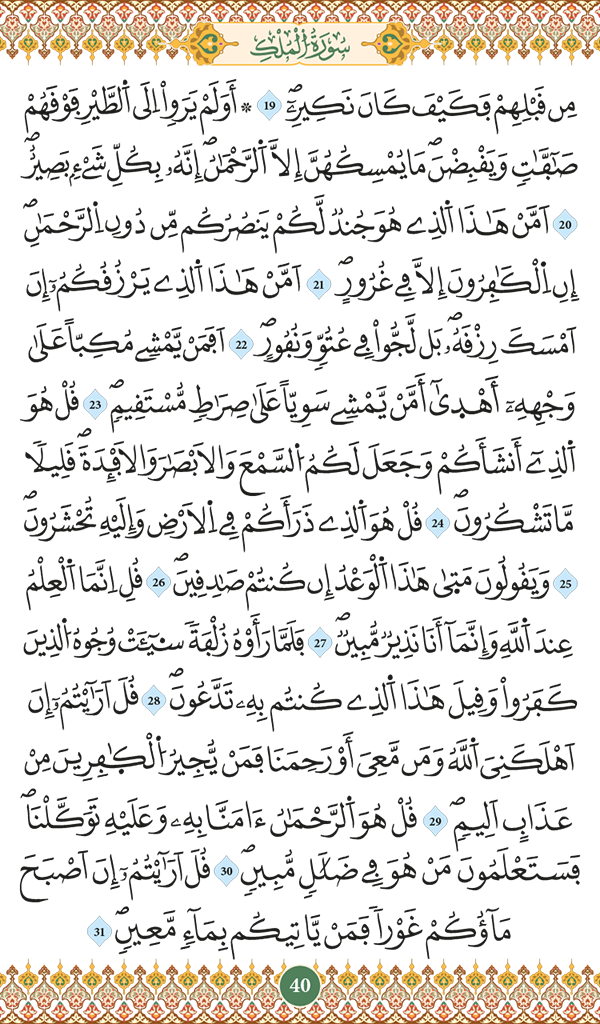 سُورَةُ الْمُلْكِ
مِن قَبْلِهِمْ فَكَيْفَ كَانَ نَكِيرِۦٓ 19 * أَوَلَمْ يَرَوِاْ اِلَى اَلطَّيْرِ فَوْقَهُمْ
صَٰٓفَّٰتٖ وَيَقْبِضْنَۖ مَا يُمْسِكُهُنَّ إِلَّا اَلرَّحْمَٰنُۖ إِنَّهُۥ بِكُلِّ شَےْءِۢ بَصِيرٌۖ
20 اَمَّنْ هَٰذَا اَلذِے هُوَ جُندٞ لَّكُمْ يَنصُرُكُم مِّن دُونِ اِلرَّحْمَٰنِۖ
إِنِ اِلْكَٰفِرُونَ إِلَّا فِے غُرُورٍۖ 21 اَمَّنْ هَٰذَا اَلذِے يَرْزُقُكُمُۥٓ إِنَ
اَمْسَكَ رِزْقَهُۥۖ بَل لَّجُّواْ فِے عُتُوّٖ وَنُفُورٍۖ 22 اَفَمَنْ يَّمْشِے مُكِبّاً عَلَىٰ
وَجْهِهِۦٓ أَهْد۪ىٰٓ أَمَّنْ يَّمْشِے سَوِيّاً عَلَىٰ صِرَٰطٖ مُّسْتَقِيمٖۖ 23 قُلْ هُوَ
اَلذِےٓ أَنشَأَكُمْ وَجَعَلَ لَكُمُ اُلسَّمْعَ وَالَابْصَٰرَ وَالَافْـِٕدَةَۖ قَلِيلاٗ
مَّا تَشْكُرُونَۖ 24 قُلْ هُوَ اَلذِے ذَرَأَكُمْ فِے اِلَارْضِ وَإِلَيْهِ تُحْشَرُونَۖ
25 وَيَقُولُونَ مَت۪ىٰ هَٰذَا اَلْوَعْدُ إِن كُنتُمْ صَٰدِقِينَۖ 26 قُلِ اِنَّمَا اَلْعِلْمُ
عِندَ اَللَّهِ وَإِنَّمَآ أَنَا نَذِيرٞ مُّبِينٞۖ 27 فَلَمَّا رَأَوْهُ زُلْفَةٗ سِيٓـَٔتْ وُجُوهُ اُلذِينَ
كَفَرُواْ وَقِيلَ هَٰذَا اَلذِے كُنتُم بِهِۦ تَدَّعُونَۖ 28 قُلَ اَرَآيْتُمُۥٓ إِنَ
اَهْلَكَنِيَ اَللَّهُ وَمَن مَّعِيَ أَوْ رَحِمَنَا فَمَنْ يُّجِيرُ اُلْكٰ۪فِرِينَ مِنْ
عَذَابٍ اَلِيمٖۖ 29 قُلْ هُوَ اَلرَّحْمَٰنُ ءَامَنَّا بِهِۦ وَعَلَيْهِ تَوَكَّلْنَاۖ
فَسَتَعْلَمُونَ مَنْ هُوَ فِے ضَلَٰلٖ مُّبِينٖۖ 30 قُلَ اَرَآيْتُمُۥٓ إِنَ اَصْبَحَ
مَآؤُكُمْ غَوْراٗ فَمَنْ يَّاتِيكُم بِمَآءٖ مَّعِينٖۖ 31
40